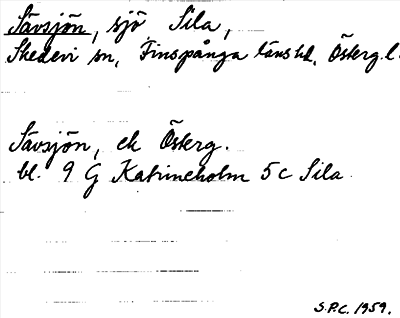 Sävsjön, sjö, Sila,
Skedevi sn, Finspånga läns hd. Österg. l.
Sävsjön, ek Österg.
bl. 9 G Katrineholm 5 c Sila
S.P.C. 1959.